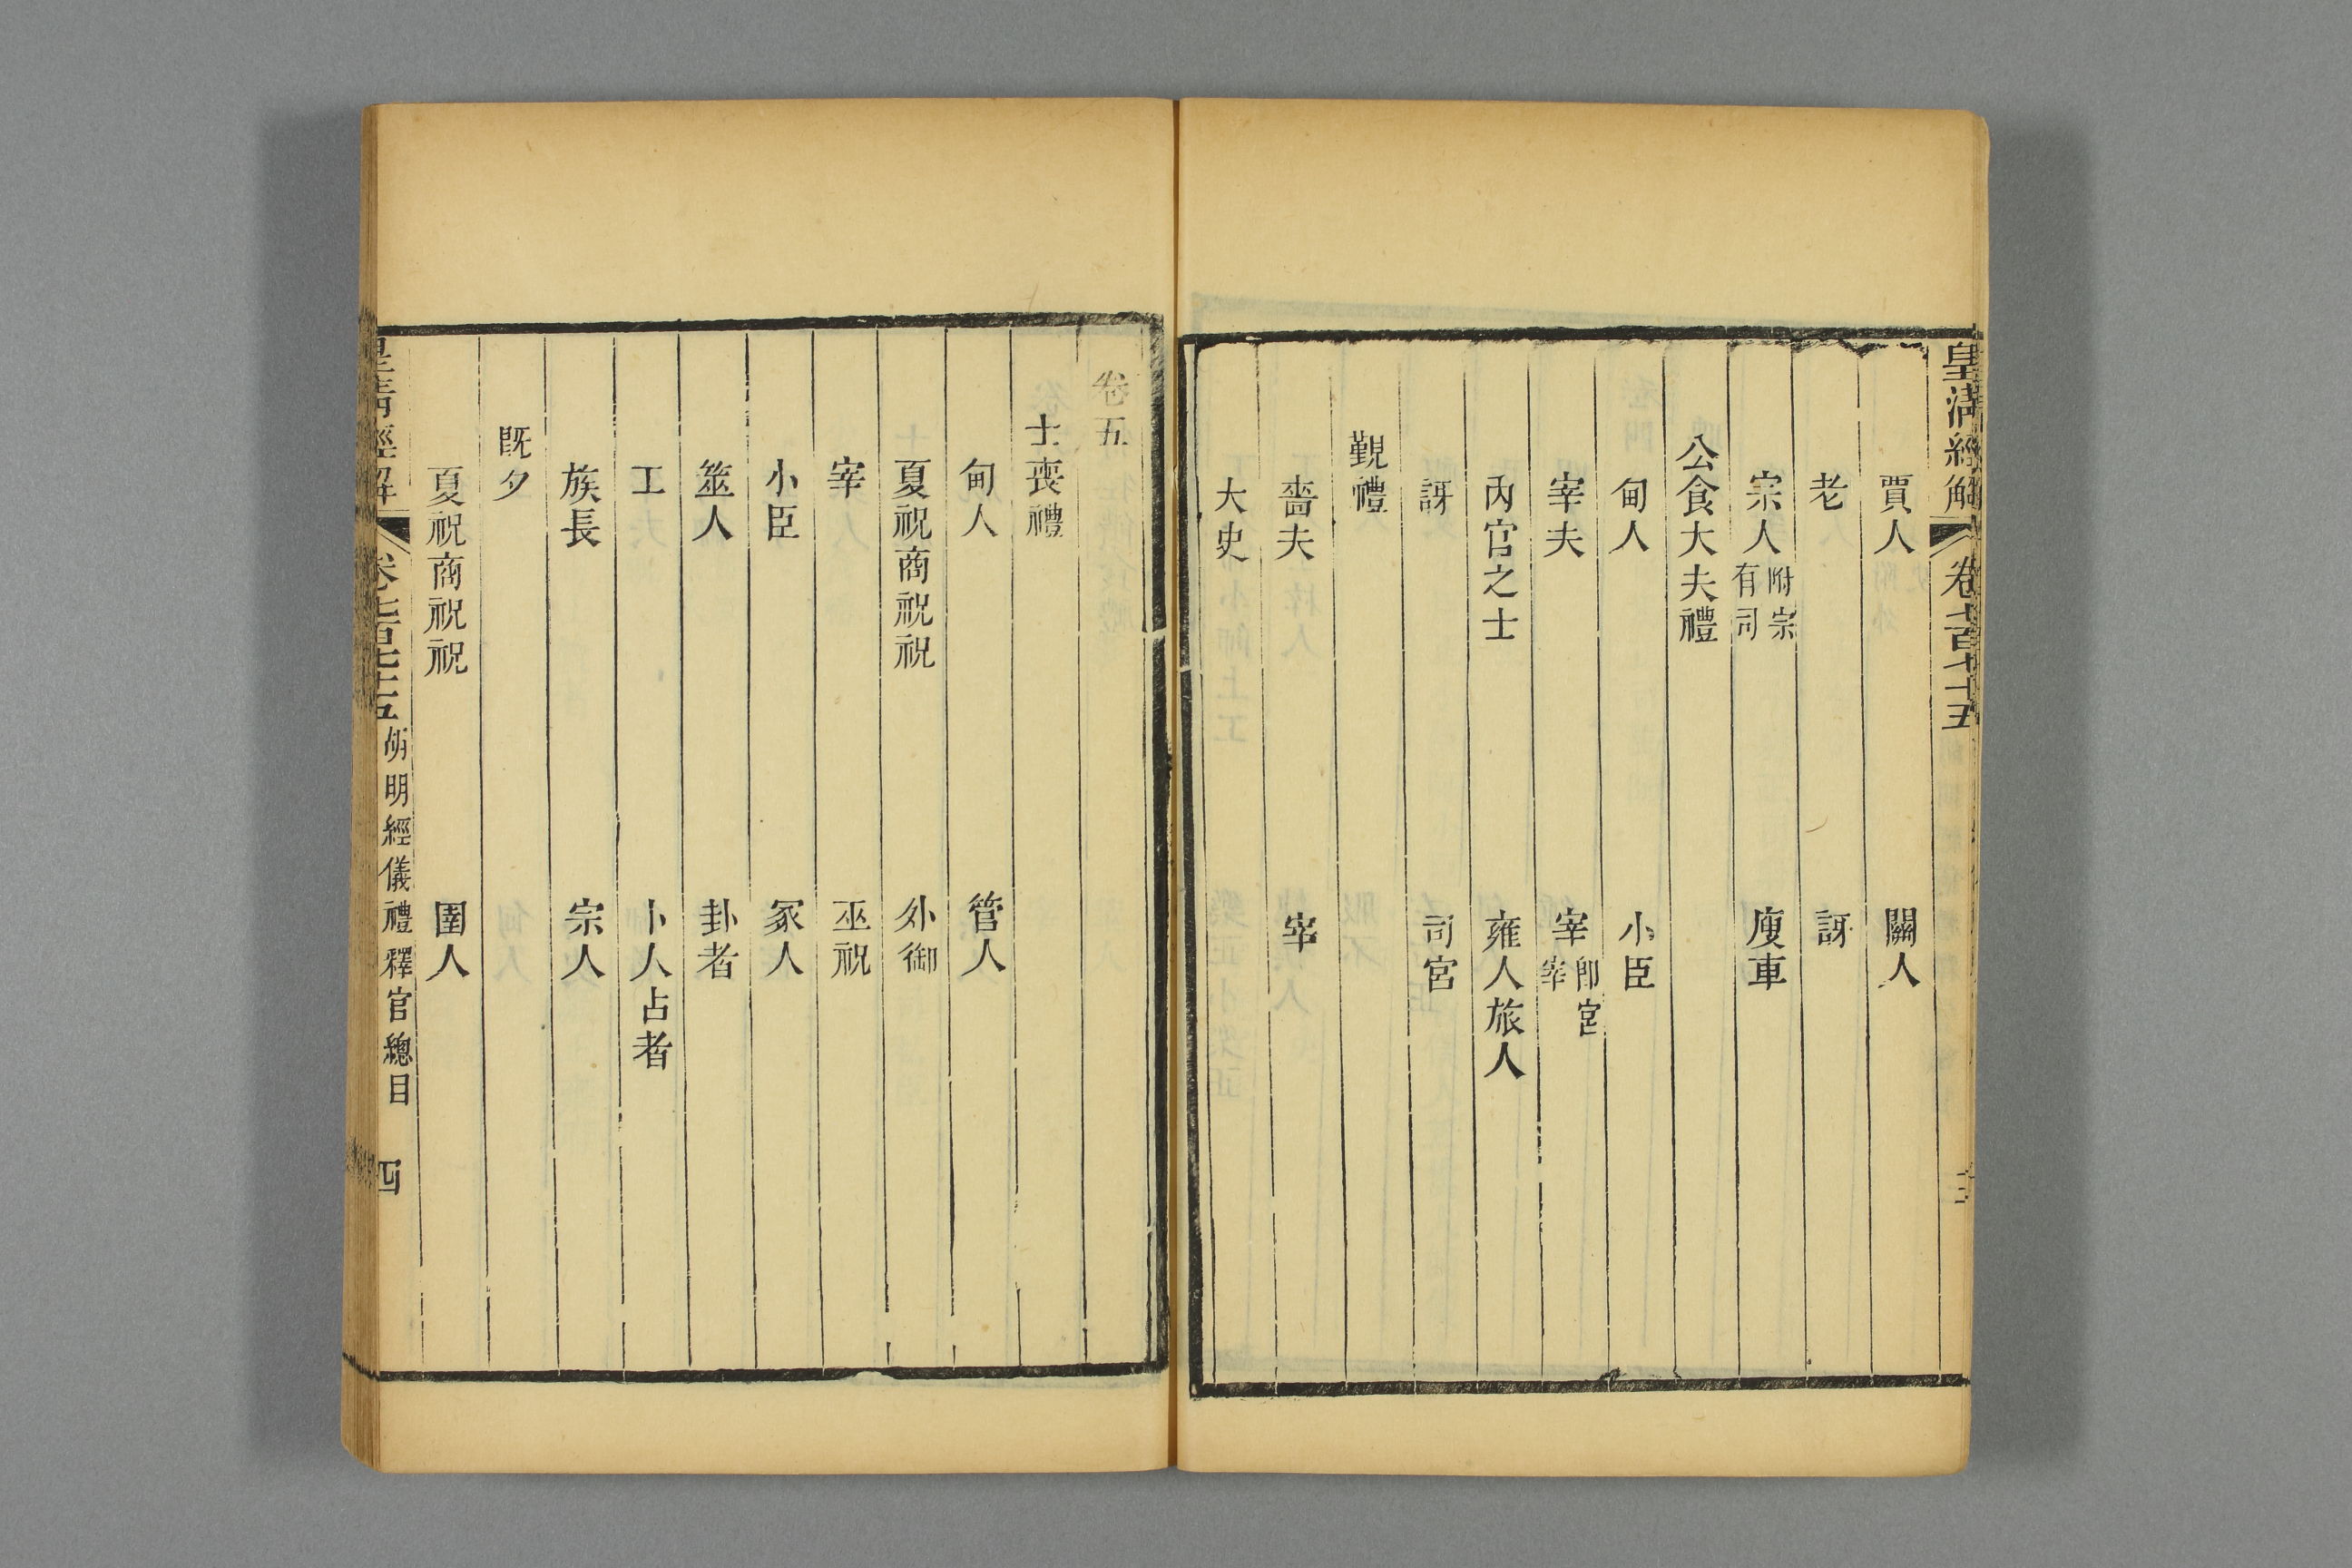 皇清經解 卷七百七十五
賈人 關人
老 訝
宗人附宗有司 廋車
公食大夫禮
甸人 小臣
宰夫 宰卽宮宰
內官之士 雍人旅人
訝 司宮
覲禮
嗇夫 宰
大史
卷五
士喪禮
甸人 管人
夏祝商祝祝 外御
宰 巫祝
小臣 冢人
筮人 卦者
工 卜人占者
族長 宗人
既夕
夏祝商祝祝 圉人
皇清經解 卷七百七十五 胡明經儀禮釋官總目 四